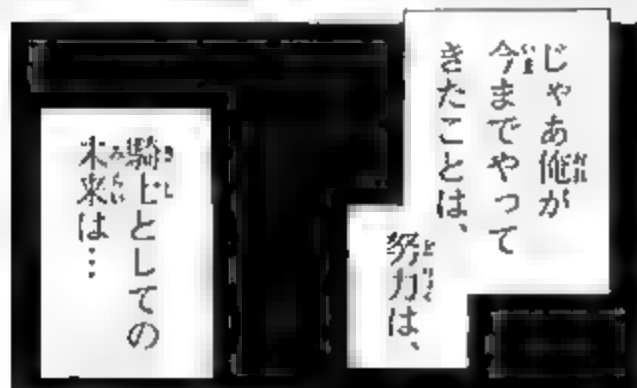 じゃあ俺が
今までやって
きたことは、
努力は、
騎士としての
未来は…